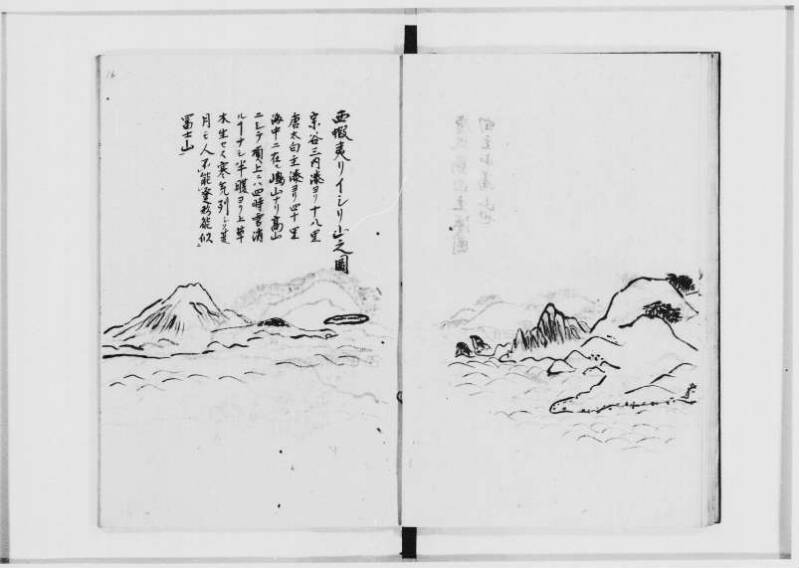 西蝦夷リイシリ山之圖
宗谷三内湊ヨリ十八里
唐太白主湊ヨリ四十里
海中ニ在ル嶋山ナリ高山
ニシテ頂上ハ四時雪消
ルコナシ半腹ヨリ上草
木生セス寒気列シク
月モ人不能登形能似
冨士山
16